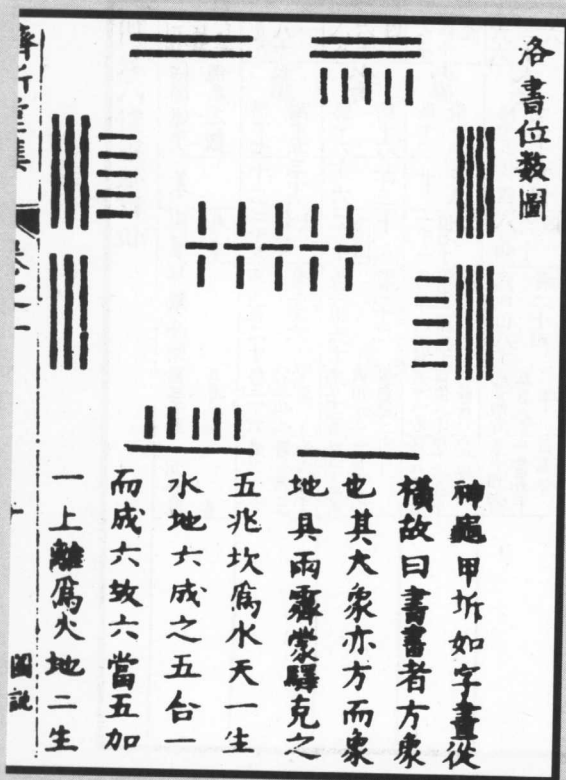 洛書位數圖
神龜甲坼如字畫從
橫故曰書書者方象
也其大象亦方而象
地具雨霽蒙驛克之
五兆坎爲水天一生
水地六成之五合一
而成六故六當五加
一上離爲火地二生
卷之一
圖說